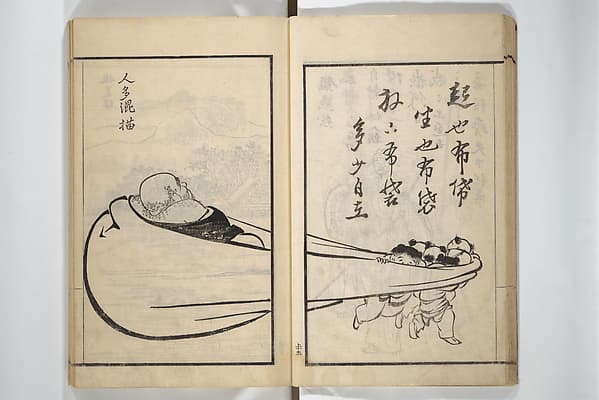 起也布袋
坐也布袋
放下布袋
多少自在
人多混描